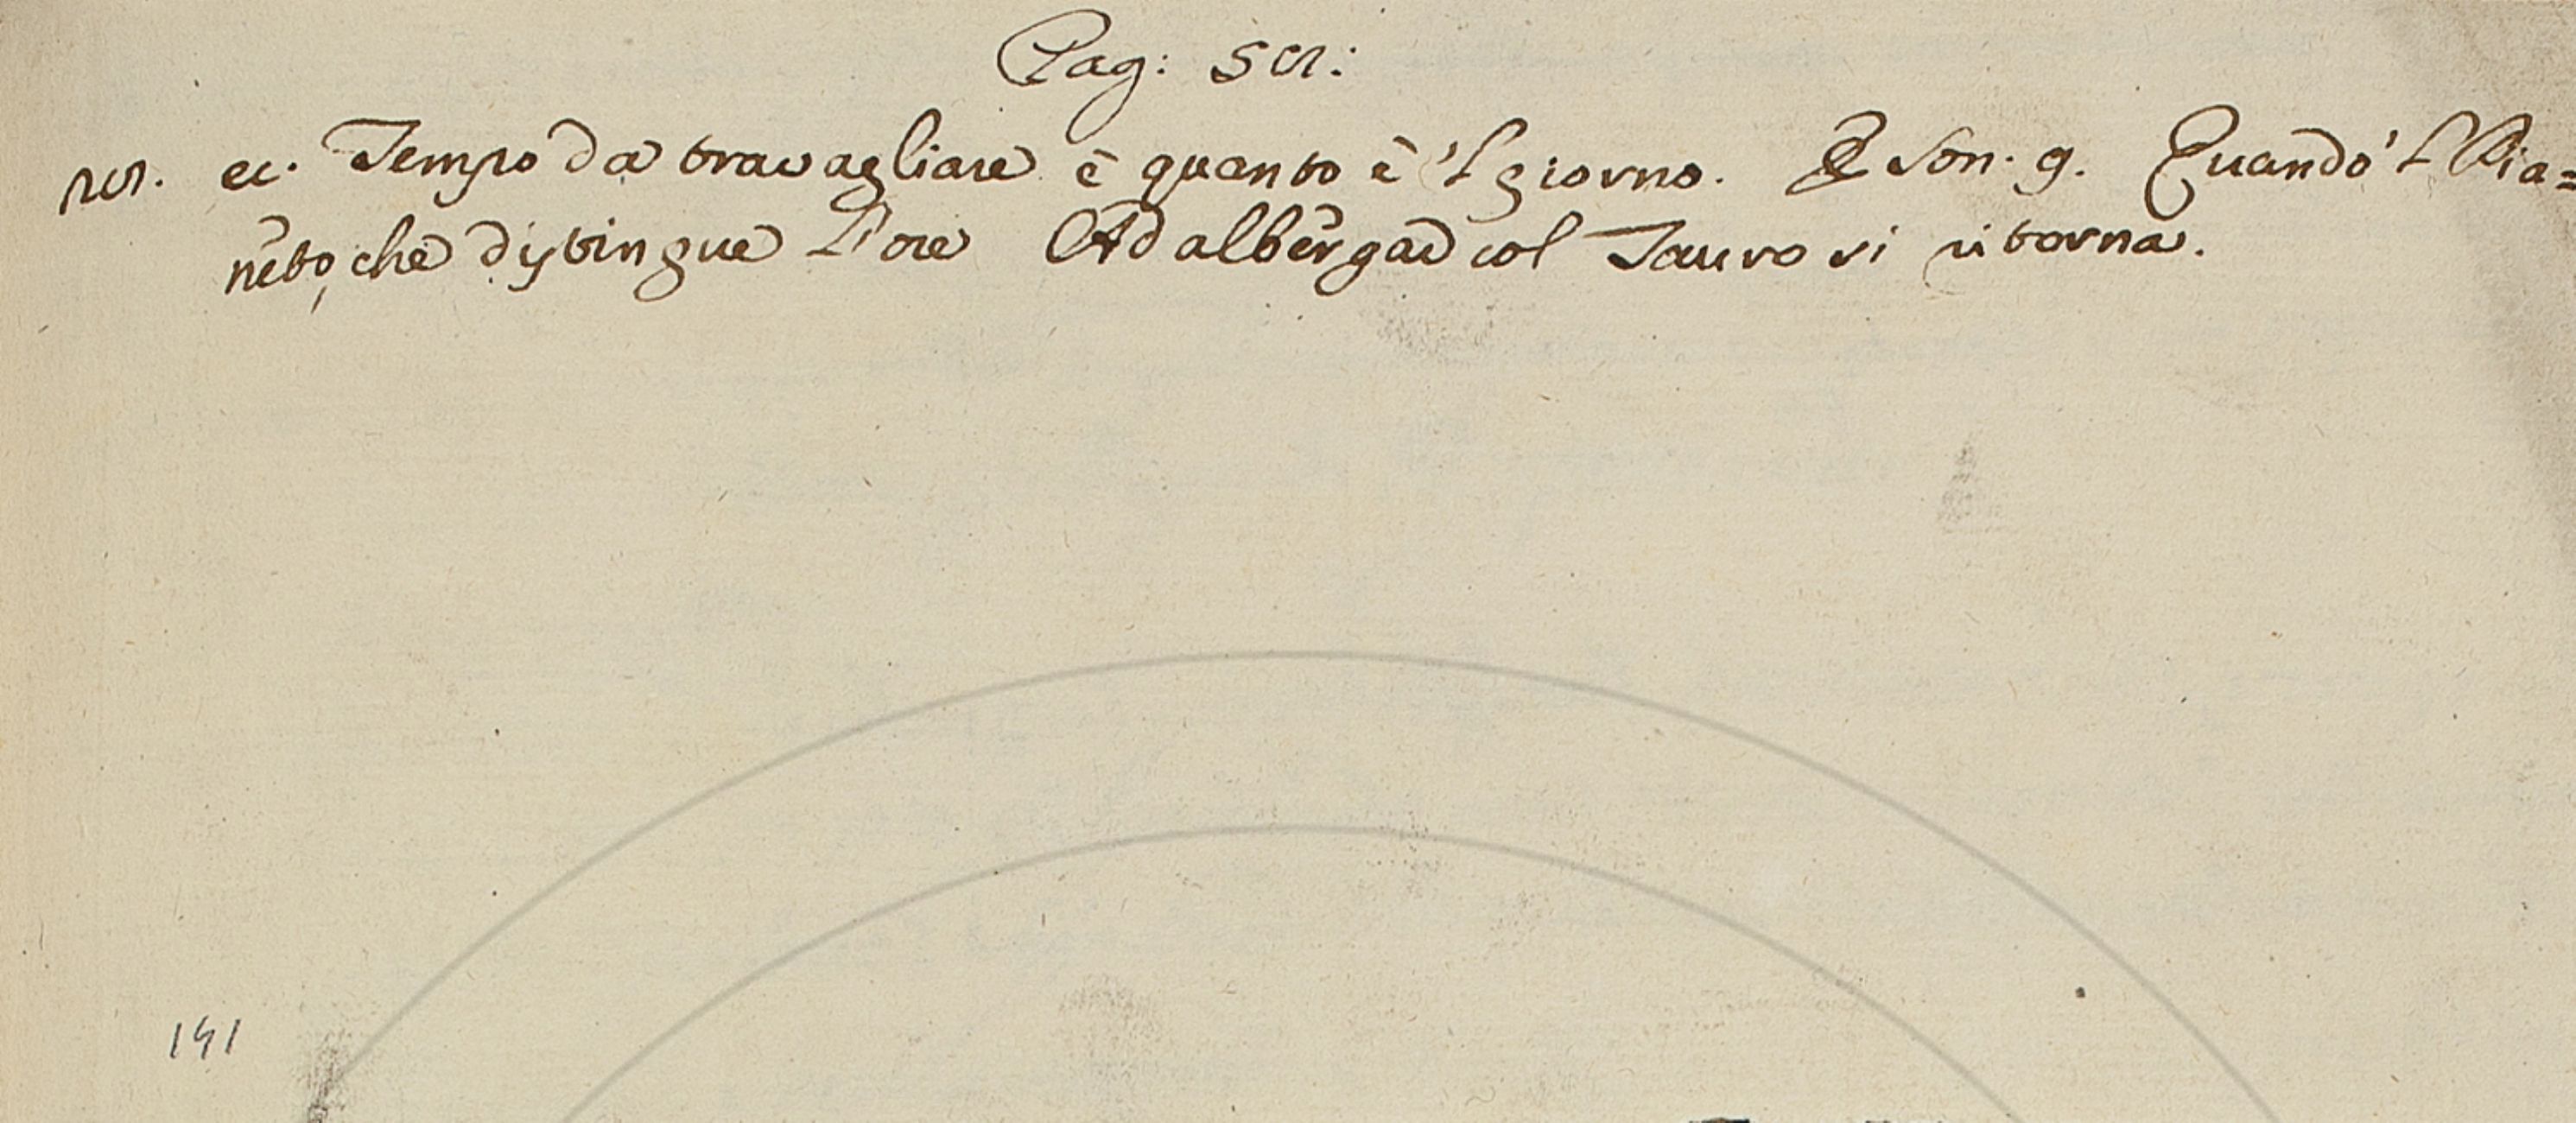 Pag: 501:
201. ec. Tempo da travagliare è quanto è 'l giorno. E Son. 9. Quando 'l Pia=
neto, che distingue l'ore Ad albergar col Tauro si ritorna.
141